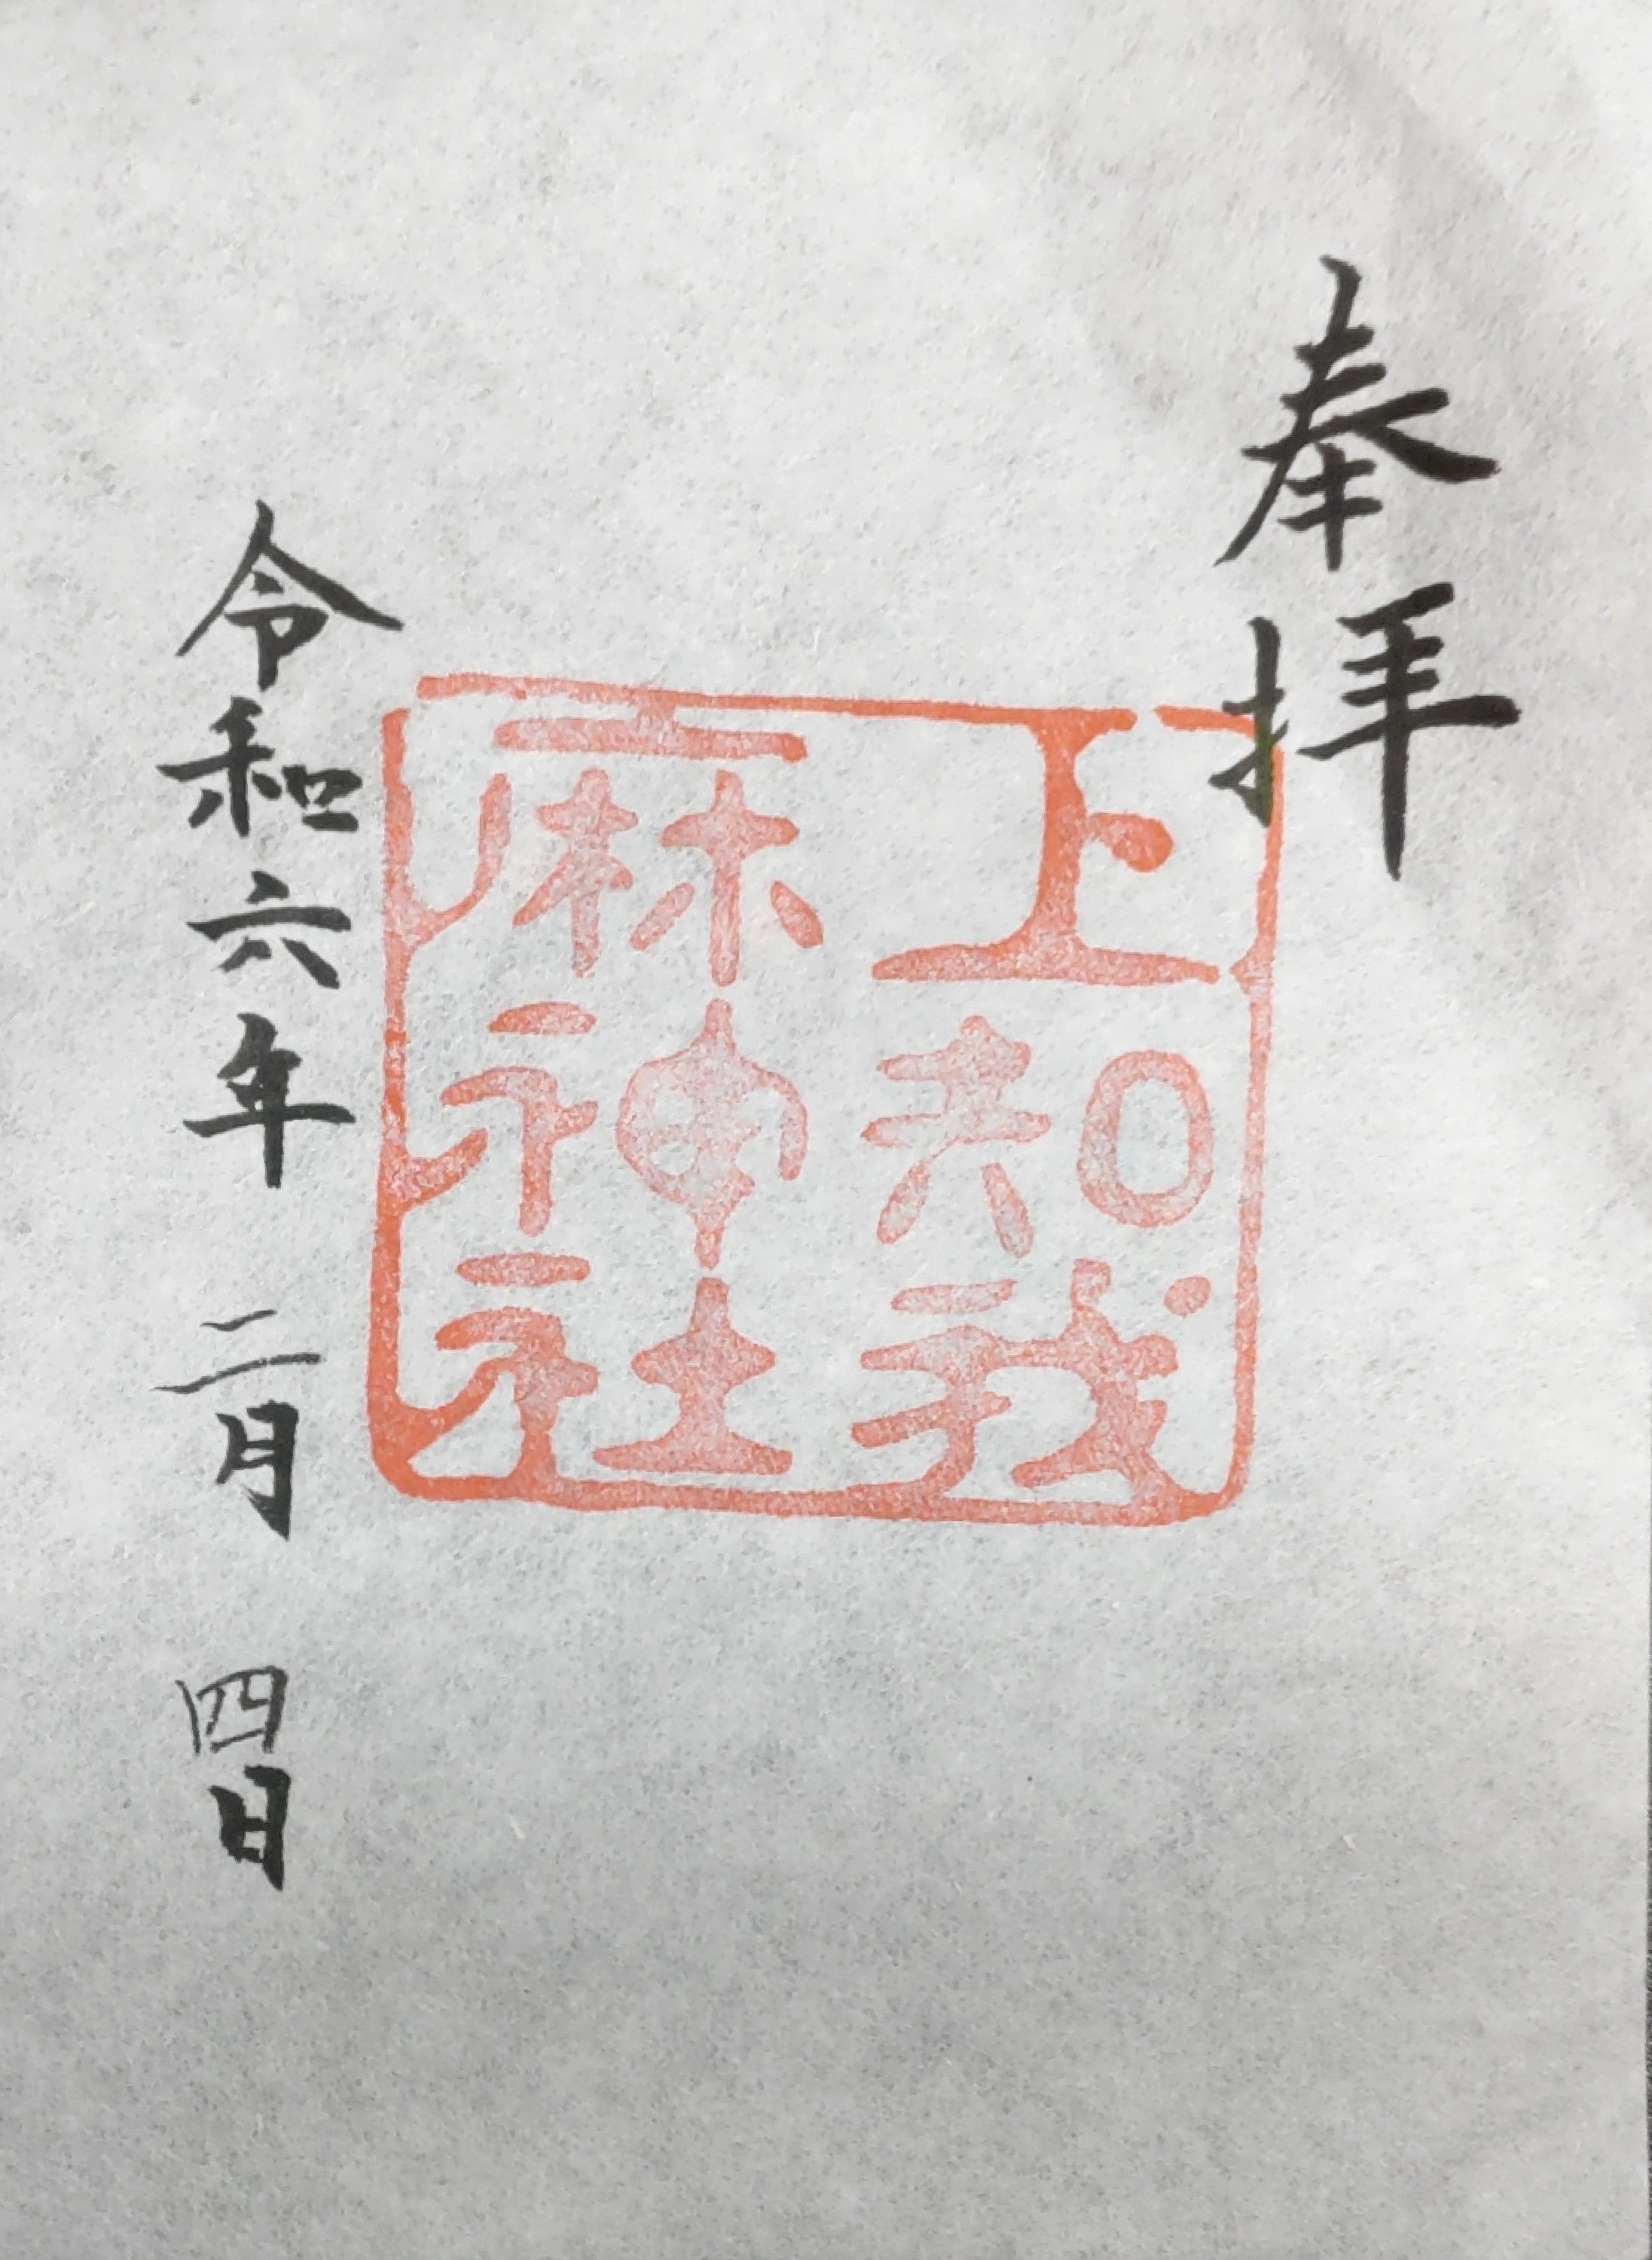 奉拝
上知我
麻神社
令和六年二月四日